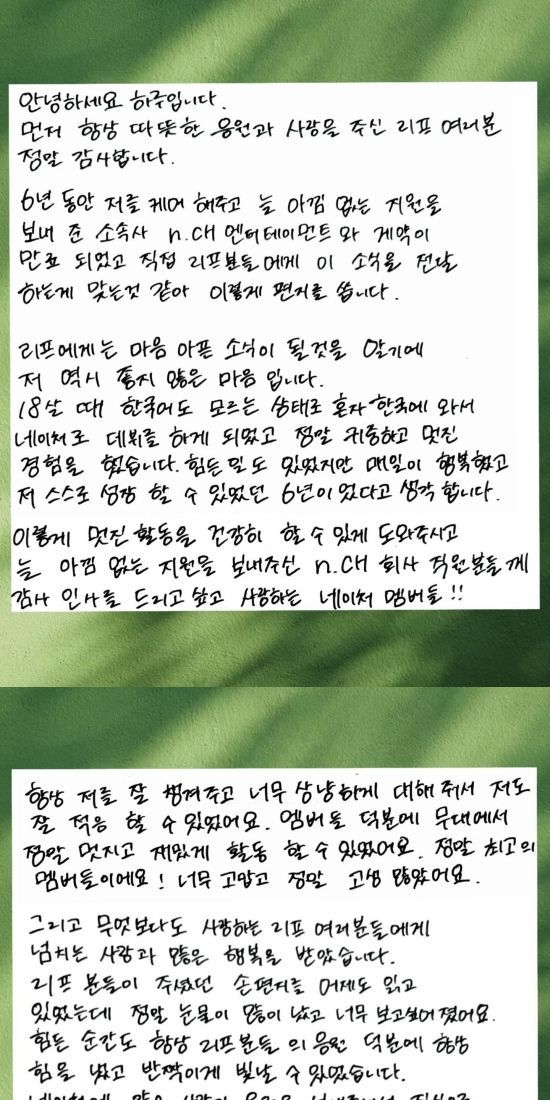 안녕하세요 하루입니다.
먼저 항상 따뜻한 응원과 사랑을 주신 리프 여러분
정말 감사합니다.
6년 동안 저를 케어 해주고 늘 아낌 없는 지원을
보내 준 소속사 n.CH 엔터테이먼트와 계약이
만료 되었고 직접 리프분들에게 이 소식을 전달
하는게 맞는것 같아 이렇게 편지를 씁니다.
리프에게는 마음 아픈 소식이 될것을 알기에
저 역시 좋지 않은 마음 입니다.
18살 때 한국어도 모르는 상태로 혼자 한국에 와서
네이처로 데뷔를 하게 되었고 정말 귀중하고 멋진
경험을 했습니다. 힘든 일도 있었지만 매일이 행복했고
저 스스로 성장 할 수 있었던 6년이었다고 생각 합니다.
이렇게 멋진 활동을 건강히 할 수 있게 도와주시고
늘 아낌 없는 지원을 보내주신 n.CH 회사 직원분들께
감사 인사를 드리고 싶고 사랑하는 네이처 멤버들!!
항상 저를 잘 챙겨주고 너무 상냥하게 대해 줘서 저도
잘 적응 할 수 있었어요. 멤버들 덕분에 무대에서
정말 멋지고 재밌게 활동 할 수 있었어요. 정말 최고의
멤버들이에요! 너무 고맙고 정말 고생 많았어요.
그리고 무엇보다도 사랑하는 리프 여러분들에게
넘치는 사랑과 많은 행복을 받았습니다.
리프 분들이 주셨던 손편지를 어제도 읽고
있었는데 정말 눈물이 많이 났고 너무 보고싶어졌어요.
힘든 순간도 항상 리프분들의 응원 덕분에 항상
힘을 냈고 반짝이게 빛날 수 있었습니다.